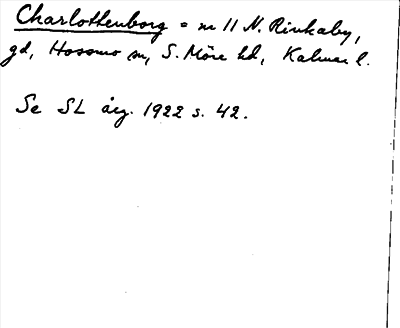 Charlottenborg = nr 11 N. Rinkaby,
gd, Hossmo sn, S. Möre hd, Kalmar l.
Se SL årg. 1922 s. 42.